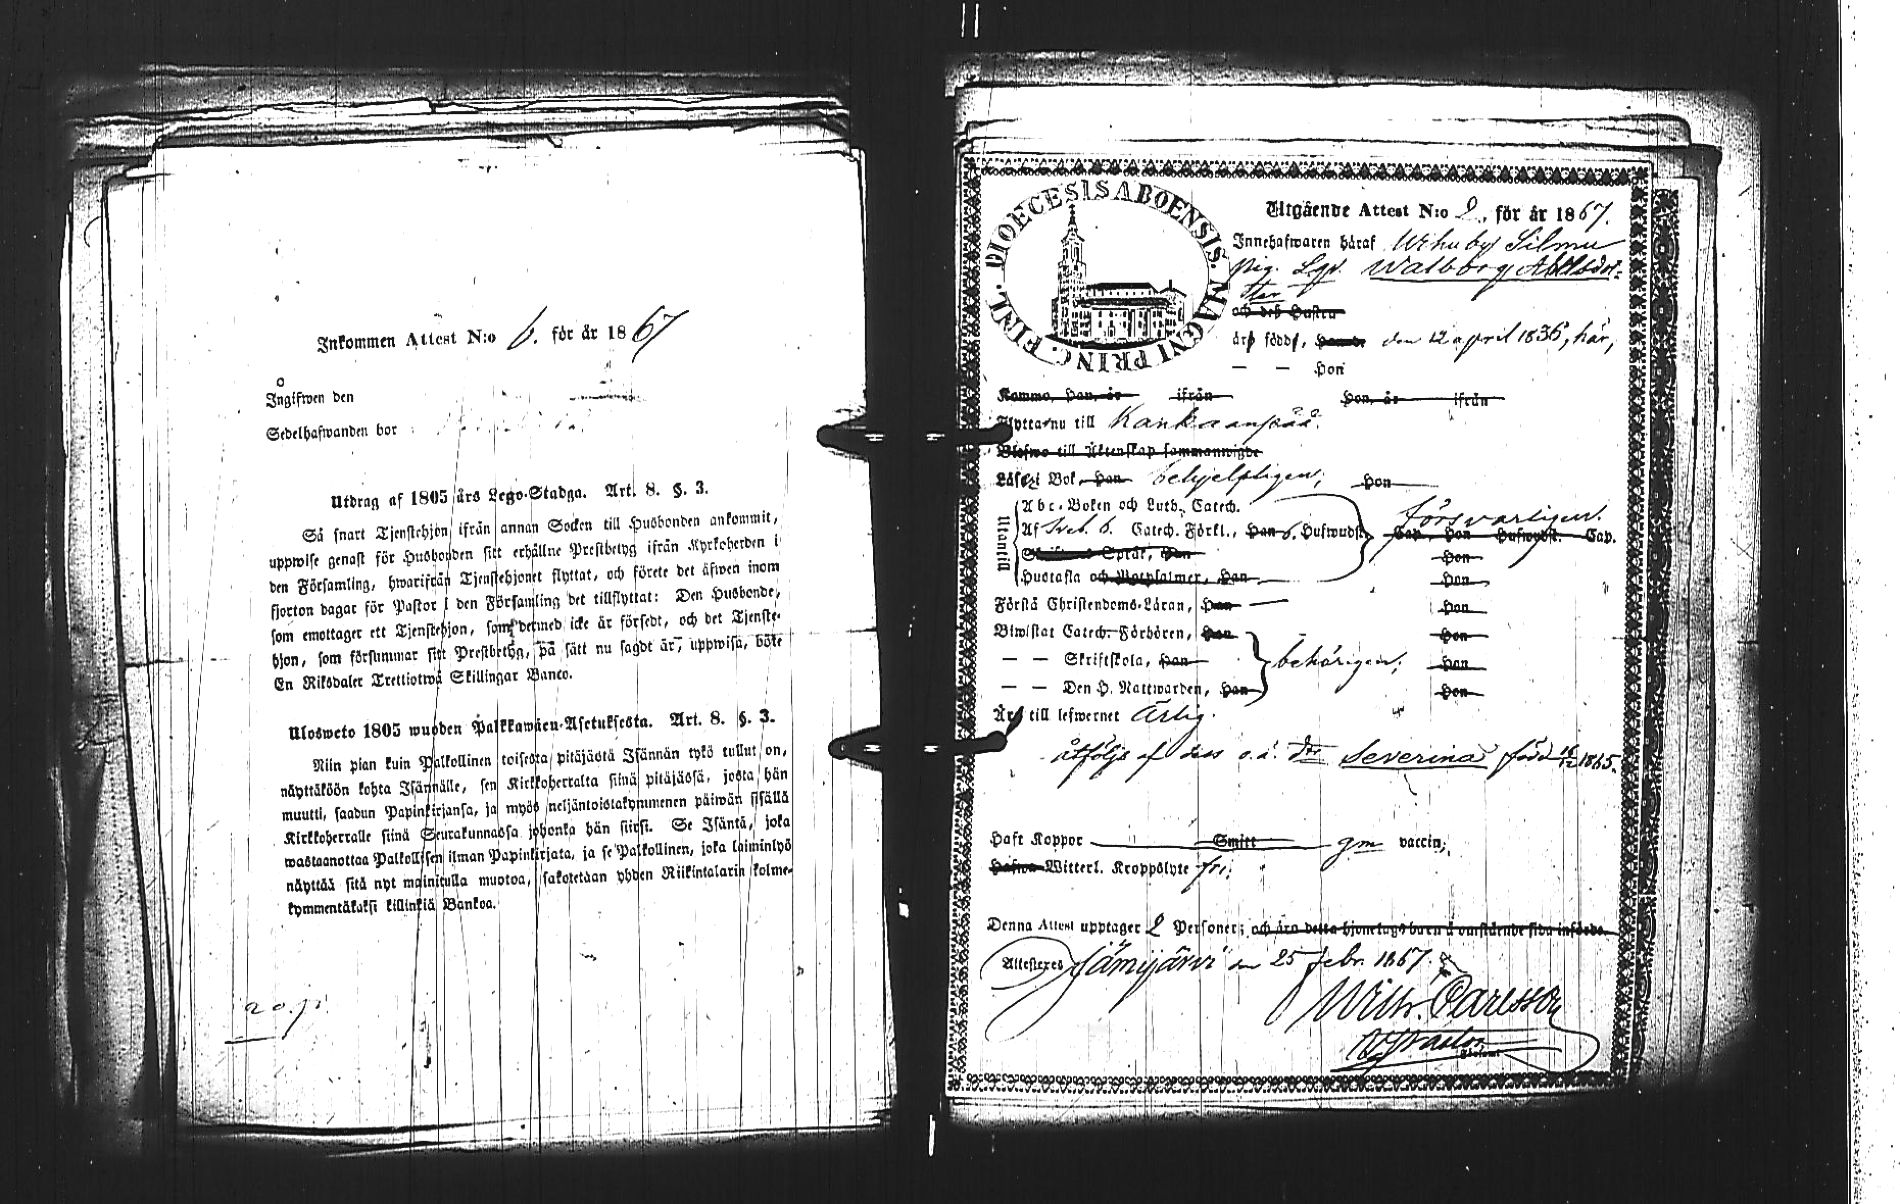 Inkommen Attest N:o 6. för år 1867
Ingifwen den
Sedelhafwanden bor
Utdrag af 1805 års Lego-Stadga. Art. 8. §. 3.
Så snart Tjenstehjon ifrån annan Socken till Husbonden ankommit,
uppwise genast för Husbonden sitt erhållne Prestbetyg ifrån Kyrkoherden i
den Församling, hwarifrån Tjenstehjonet flyttat, och förete det äfwen inom
fjorton dagar för Pastor i den Församling det tillflyttat: Den Husbonde,
som emottager ett Tjenstehjon, som dermed icke är försedt, och det Tjenste-
hjon, som försummar sitt Prestbetyg, på sätt nu sagdt är, uppwisa, böte
En Riksdaler Trettiotwå Skillingar Banco.
Ulosweto 1805 wuoden Palkkawäen-Asetuksesta. Art. 8. §. 3.
Niin pian kuin Palkollinen toisesta pitäjästä Isännän tykö tullut on,
näyttäköön kohta Isännälle, sen Kirkkoherralta siinä pitäjässä, josta hän
muutti, saadun Papinkirjansa, ja myös neljäntoistakymmenen päiwän sisällä
Kirkkoherralle siinä Seurakunnassa johonka hän siirsi. Se Isäntä, joka
wastaanottaa Palkollisen ilman Papinkirjata, ja se Palkollinen, joka laiminlyö
näyttää sitä nyt mainitulla muotoa, sakotetaan yhden Riikintalarin kolme-
kymmentäkaksi killinkiä Bankoa.
20. p.
DIOECESIS ABOENSIS. MAGNI PRINC. FINL.
Utgående Attest N:o 2, för år 1867.
Innehafwaren häraf Wihu by Silmu
pig. Walborg
ter
och dess Hustru
är född, den 12 april 1835, här,
— — Hon
Kommo, Han, år ifrån Hon, år ifrån
Flytta nu till Kankaanpää.
Blefwo till Äktenskap sammanwigde
Läser i Bok, Han behjelpligen, Hon
Utantill
Abc-Boken och Luth. Catech.
Af Sveb. b. Catech. Förkl., Han 6. Hufwudst. försvarligen. Cap. Hon Hufwudst. Cap.
Språk, Han Hon
Hustafla och Botpsalmer, Han Hon
Förstå Christendoms-Läran, Han Hon
Biwistat Catech. Förhören, Han Hon
— — Skriftskola, Han behörigen; Hon
— — Den H. Nattwarden, Han Hon
Är till lefwernet Ärlig.
åtföljs af dess o.ä. dtr Severina född 16/12 1865.
Haft Koppor Smitt gm vaccin;
Hafwa Witterl. Kroppslyte fri;
Denna Attest upptager 2 Personer; och äro detta hjonelags barn å omstående sida införde.
Attesteres Jämijärvi den 25 Febr. 1867.
Wilh. Carlsson